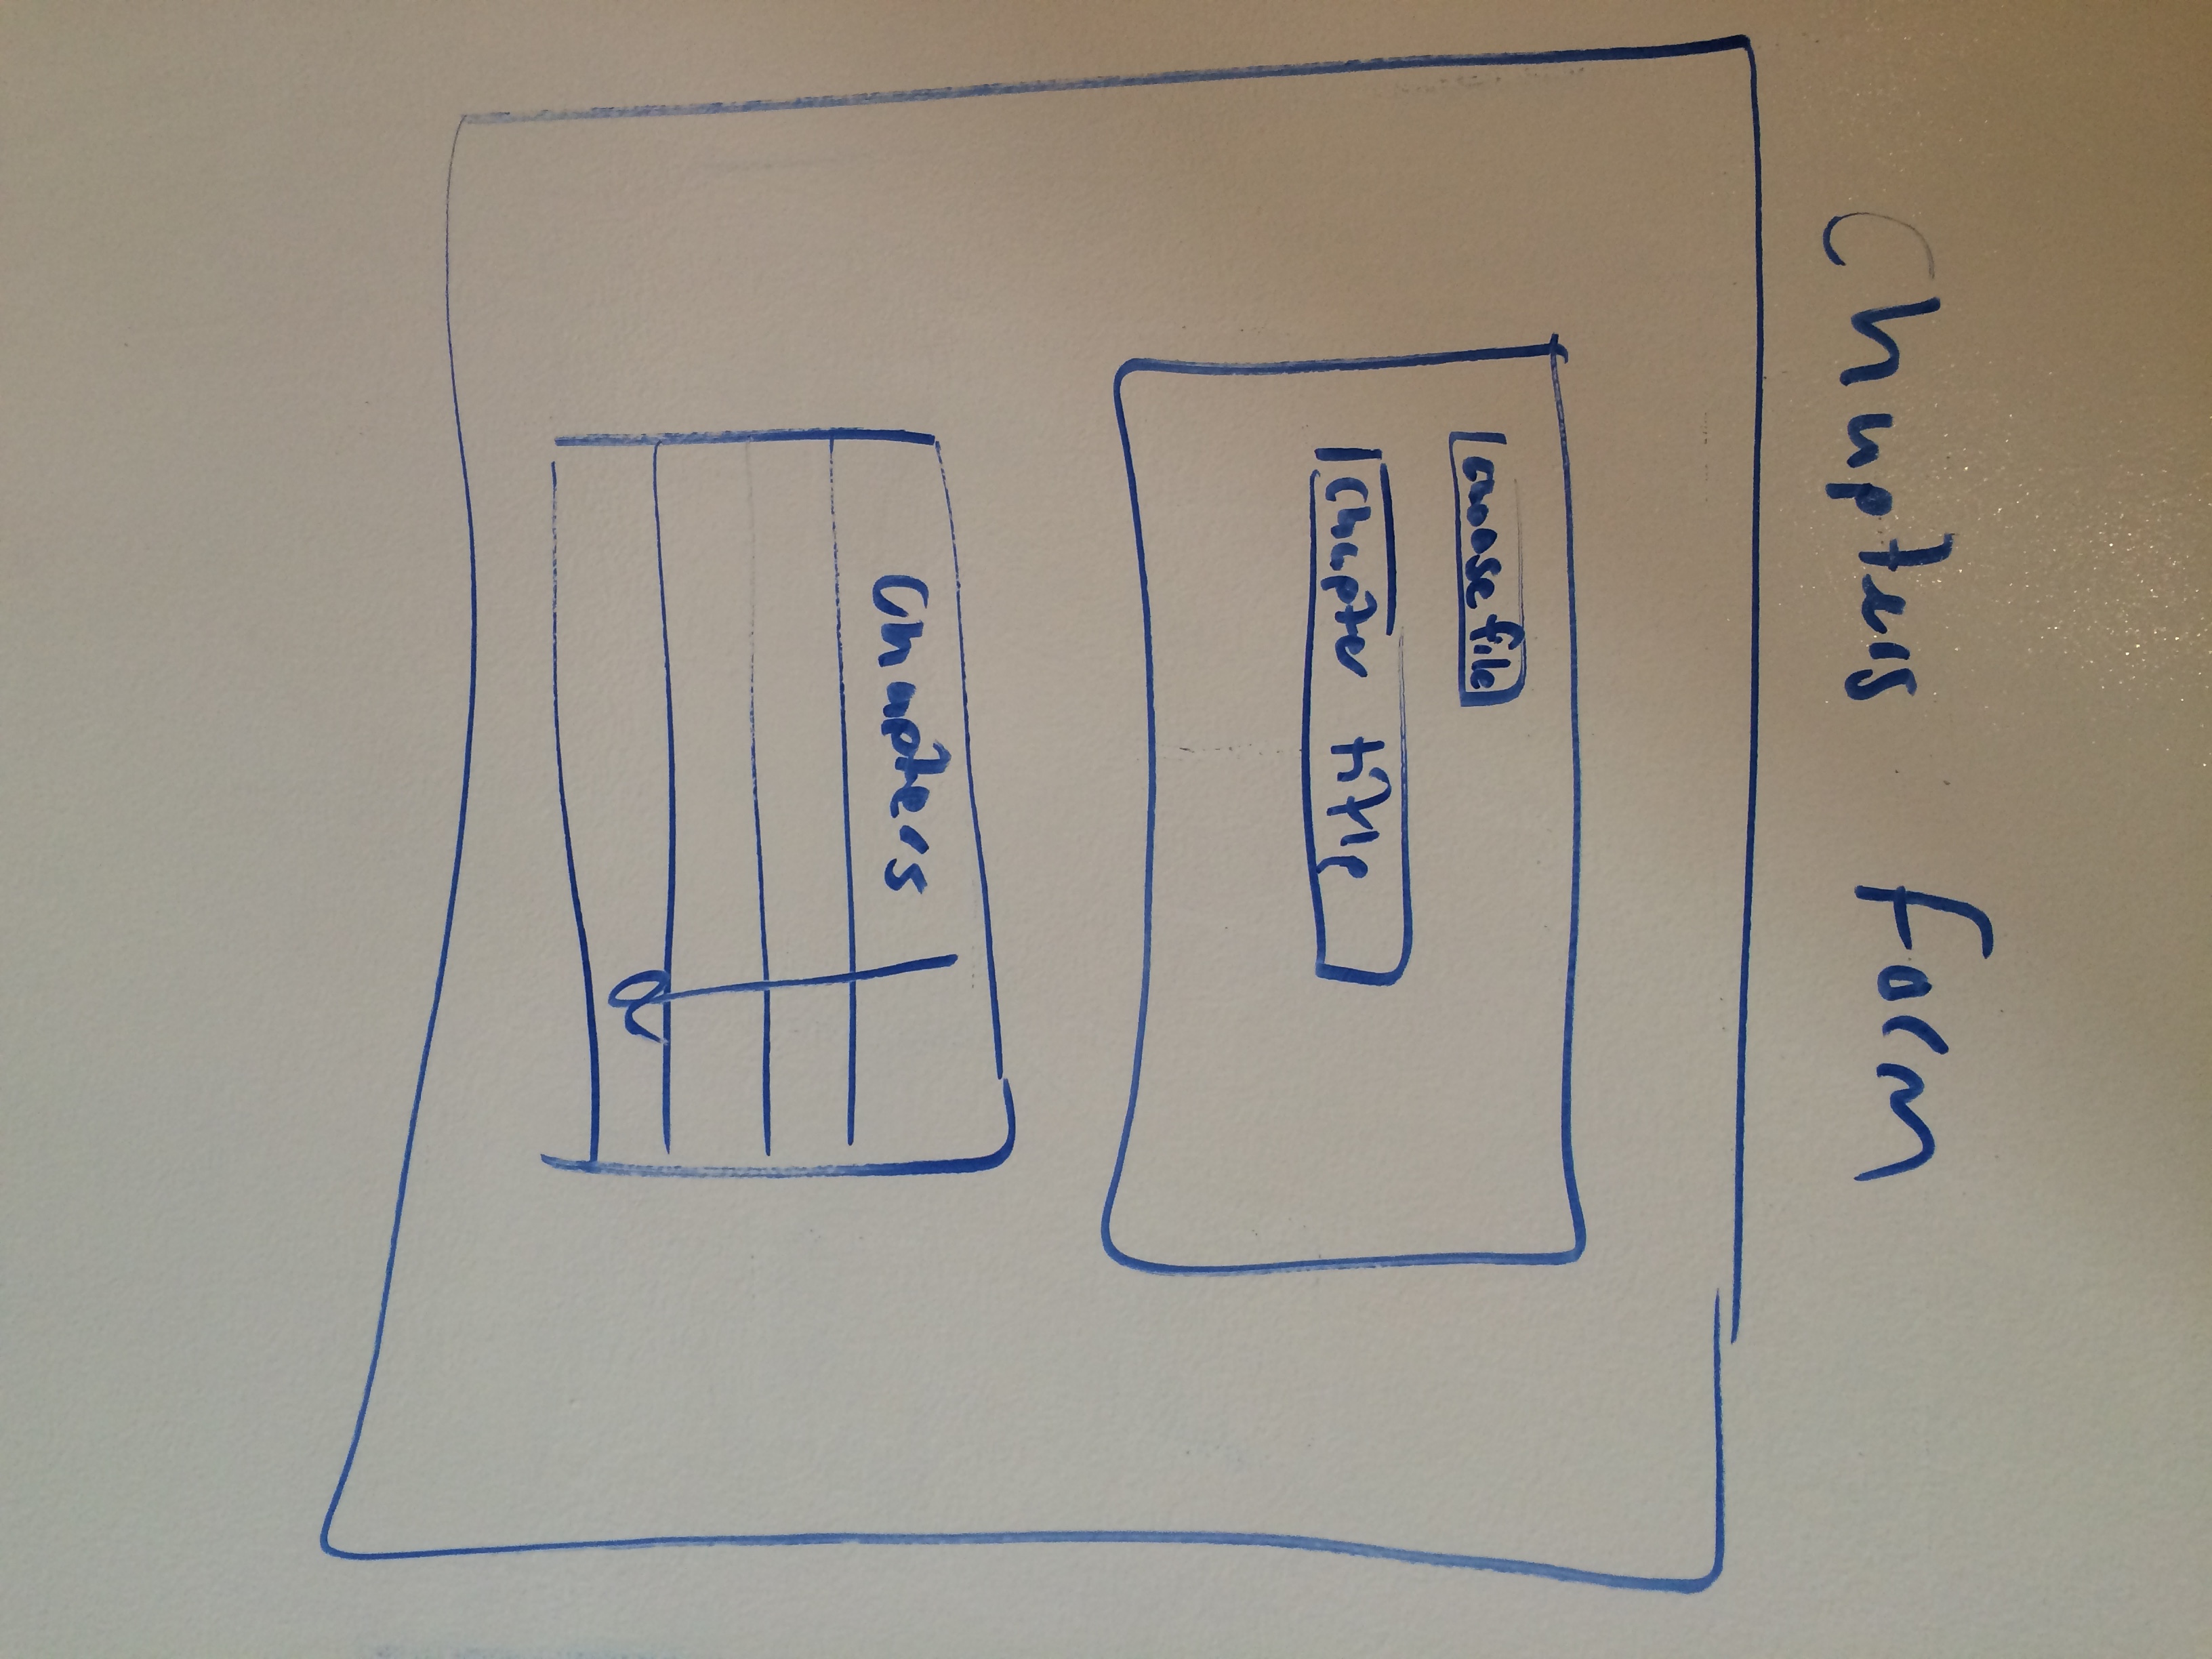 Chapters form
Choose file
Chapter title
Chapters